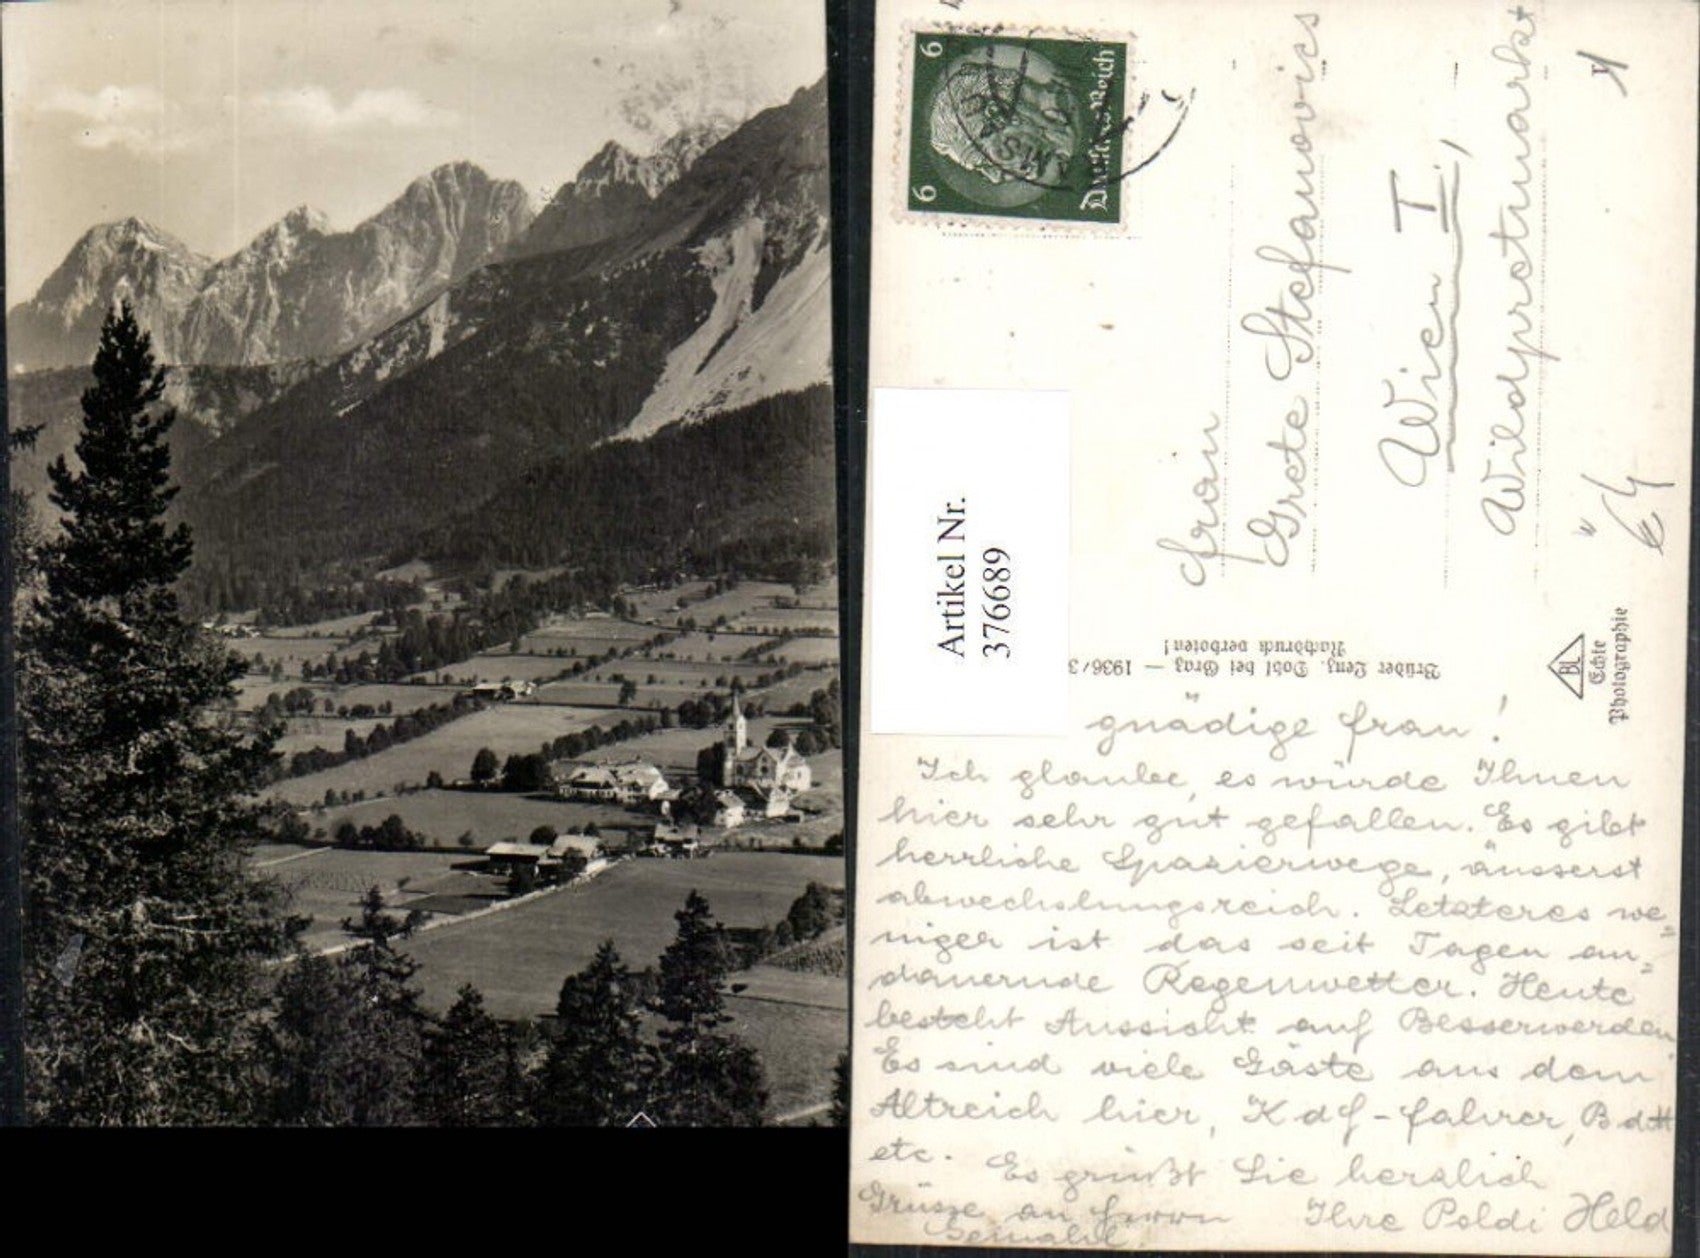 6
6
Deutsches Reich
Frau
Grete Stefanovics
Wien I.,
Wildpretmarkt
Artikel Nr.
376689
Brüder Lenz, Dobl bei Graz — 1936/3
Nachdruck verboten!
BL
Echte
Photographie
gnädige Frau!
Ich glaube, es würde Ihnen
hier sehr gut gefallen. Es gibt
herrliche Spazierwege, äusserst
abwechslungsreich. Letzteres we=
niger ist das seit Tagen an=
dauernde Regenwetter. Heute
besteht Aussicht auf Besserwerden.
Es sind viele Gäste aus dem
Altreich hier, KdF-Fahrer, BdM
etc. Es grüßt Sie herzlich
Grüsse an Herrn Ihre Poldi Held
Gemahl.